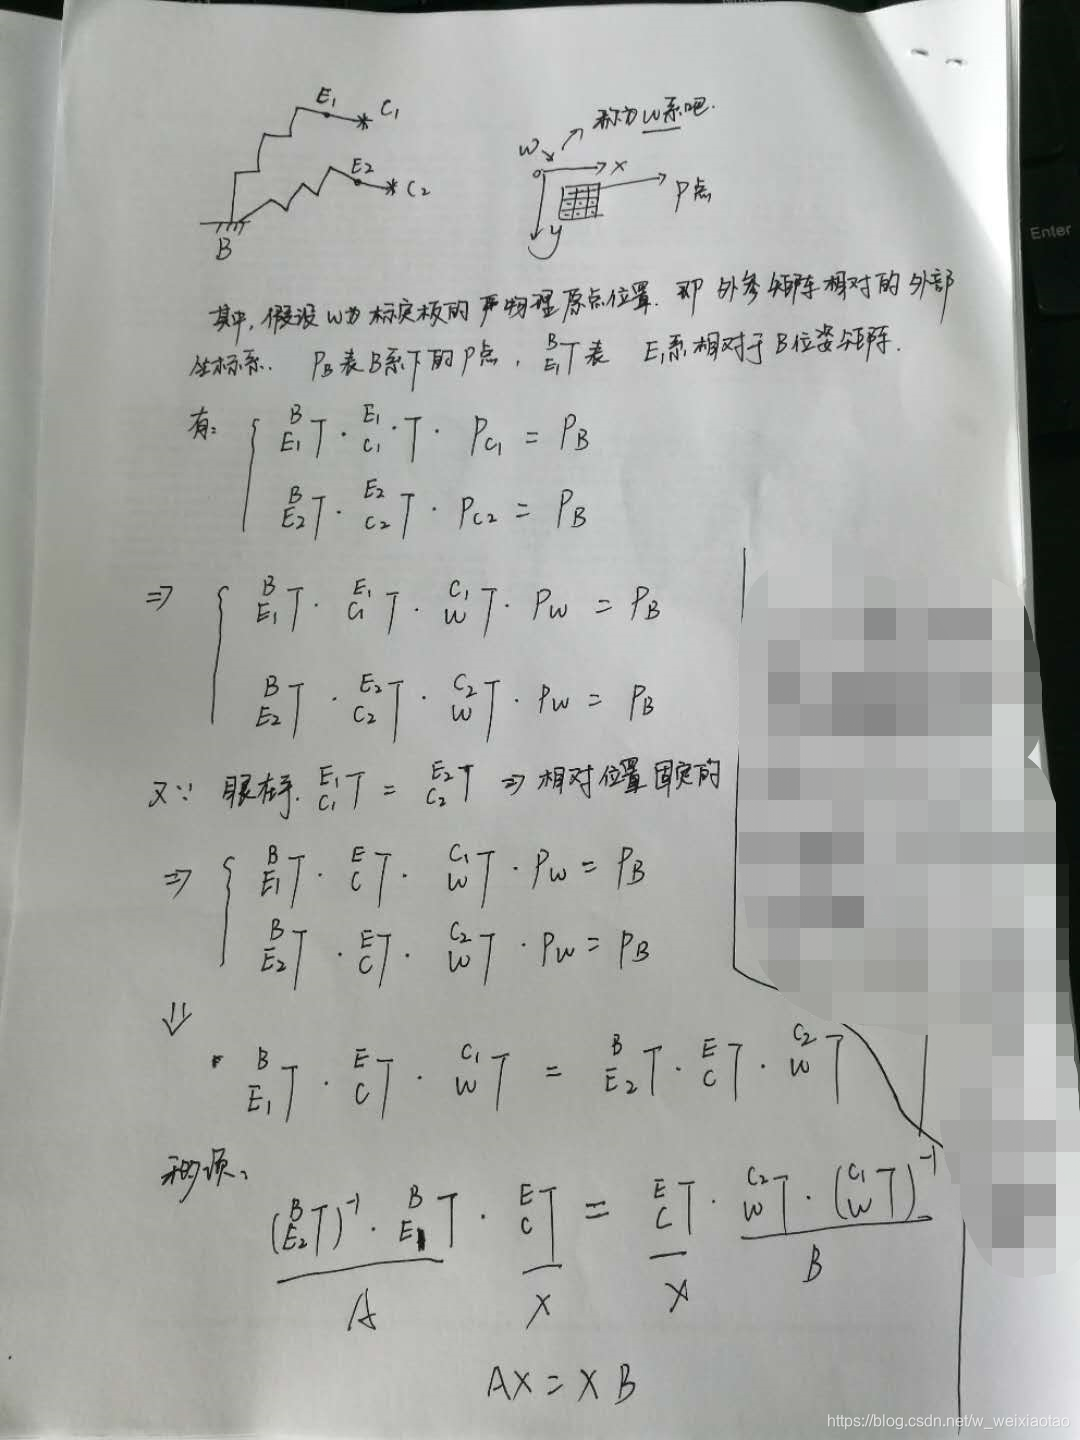 E₁ C₁
E2 C2
B
称为W系吧.
W
o x
P点
y
Enter
其中,假设W为标定板的物理原点位置.即 外参矩阵相对的外部
坐标系. P_B表B系下的P点, ^B_{E₁}T表 E₁系相对于B位姿矩阵.
有: { ^B_{E₁}T · ^{E₁}_{C₁}·T · P_{C₁} = P_B
^B_{E2}T · ^{E2}_{C2}T · P_{C2} = P_B
⇒ { ^B_{E₁}T · ^{E₁}_{C₁}T · ^{C₁}_W T · P_W = P_B
^B_{E2}T · ^{E2}_{C2}T · ^{C2}_W T · P_W = P_B
又∵ 眼在手. ^{E₁}_{C₁}T = ^{E2}_{C2}T ⇒ 相对位置固定的
⇒ { ^B_{E₁}T · ^E_C T · ^{C₁}_W T · P_W = P_B
^B_{E2}T · ^E_C T · ^{C2}_W T · P_W = P_B
⇓
^B_{E₁}T · ^E_C T · ^{C₁}_W T = ^B_{E2}T · ^E_C T · ^{C2}_W T
移项、
(^B_{E2}T)^{-1} · ^B_{E1}T · ^E_C T = ^E_C T · ^{C2}_W T · (^{C₁}_W T)^{-1}
A X X B
AX = XB
https://blog.csdn.net/w_weixiaotao